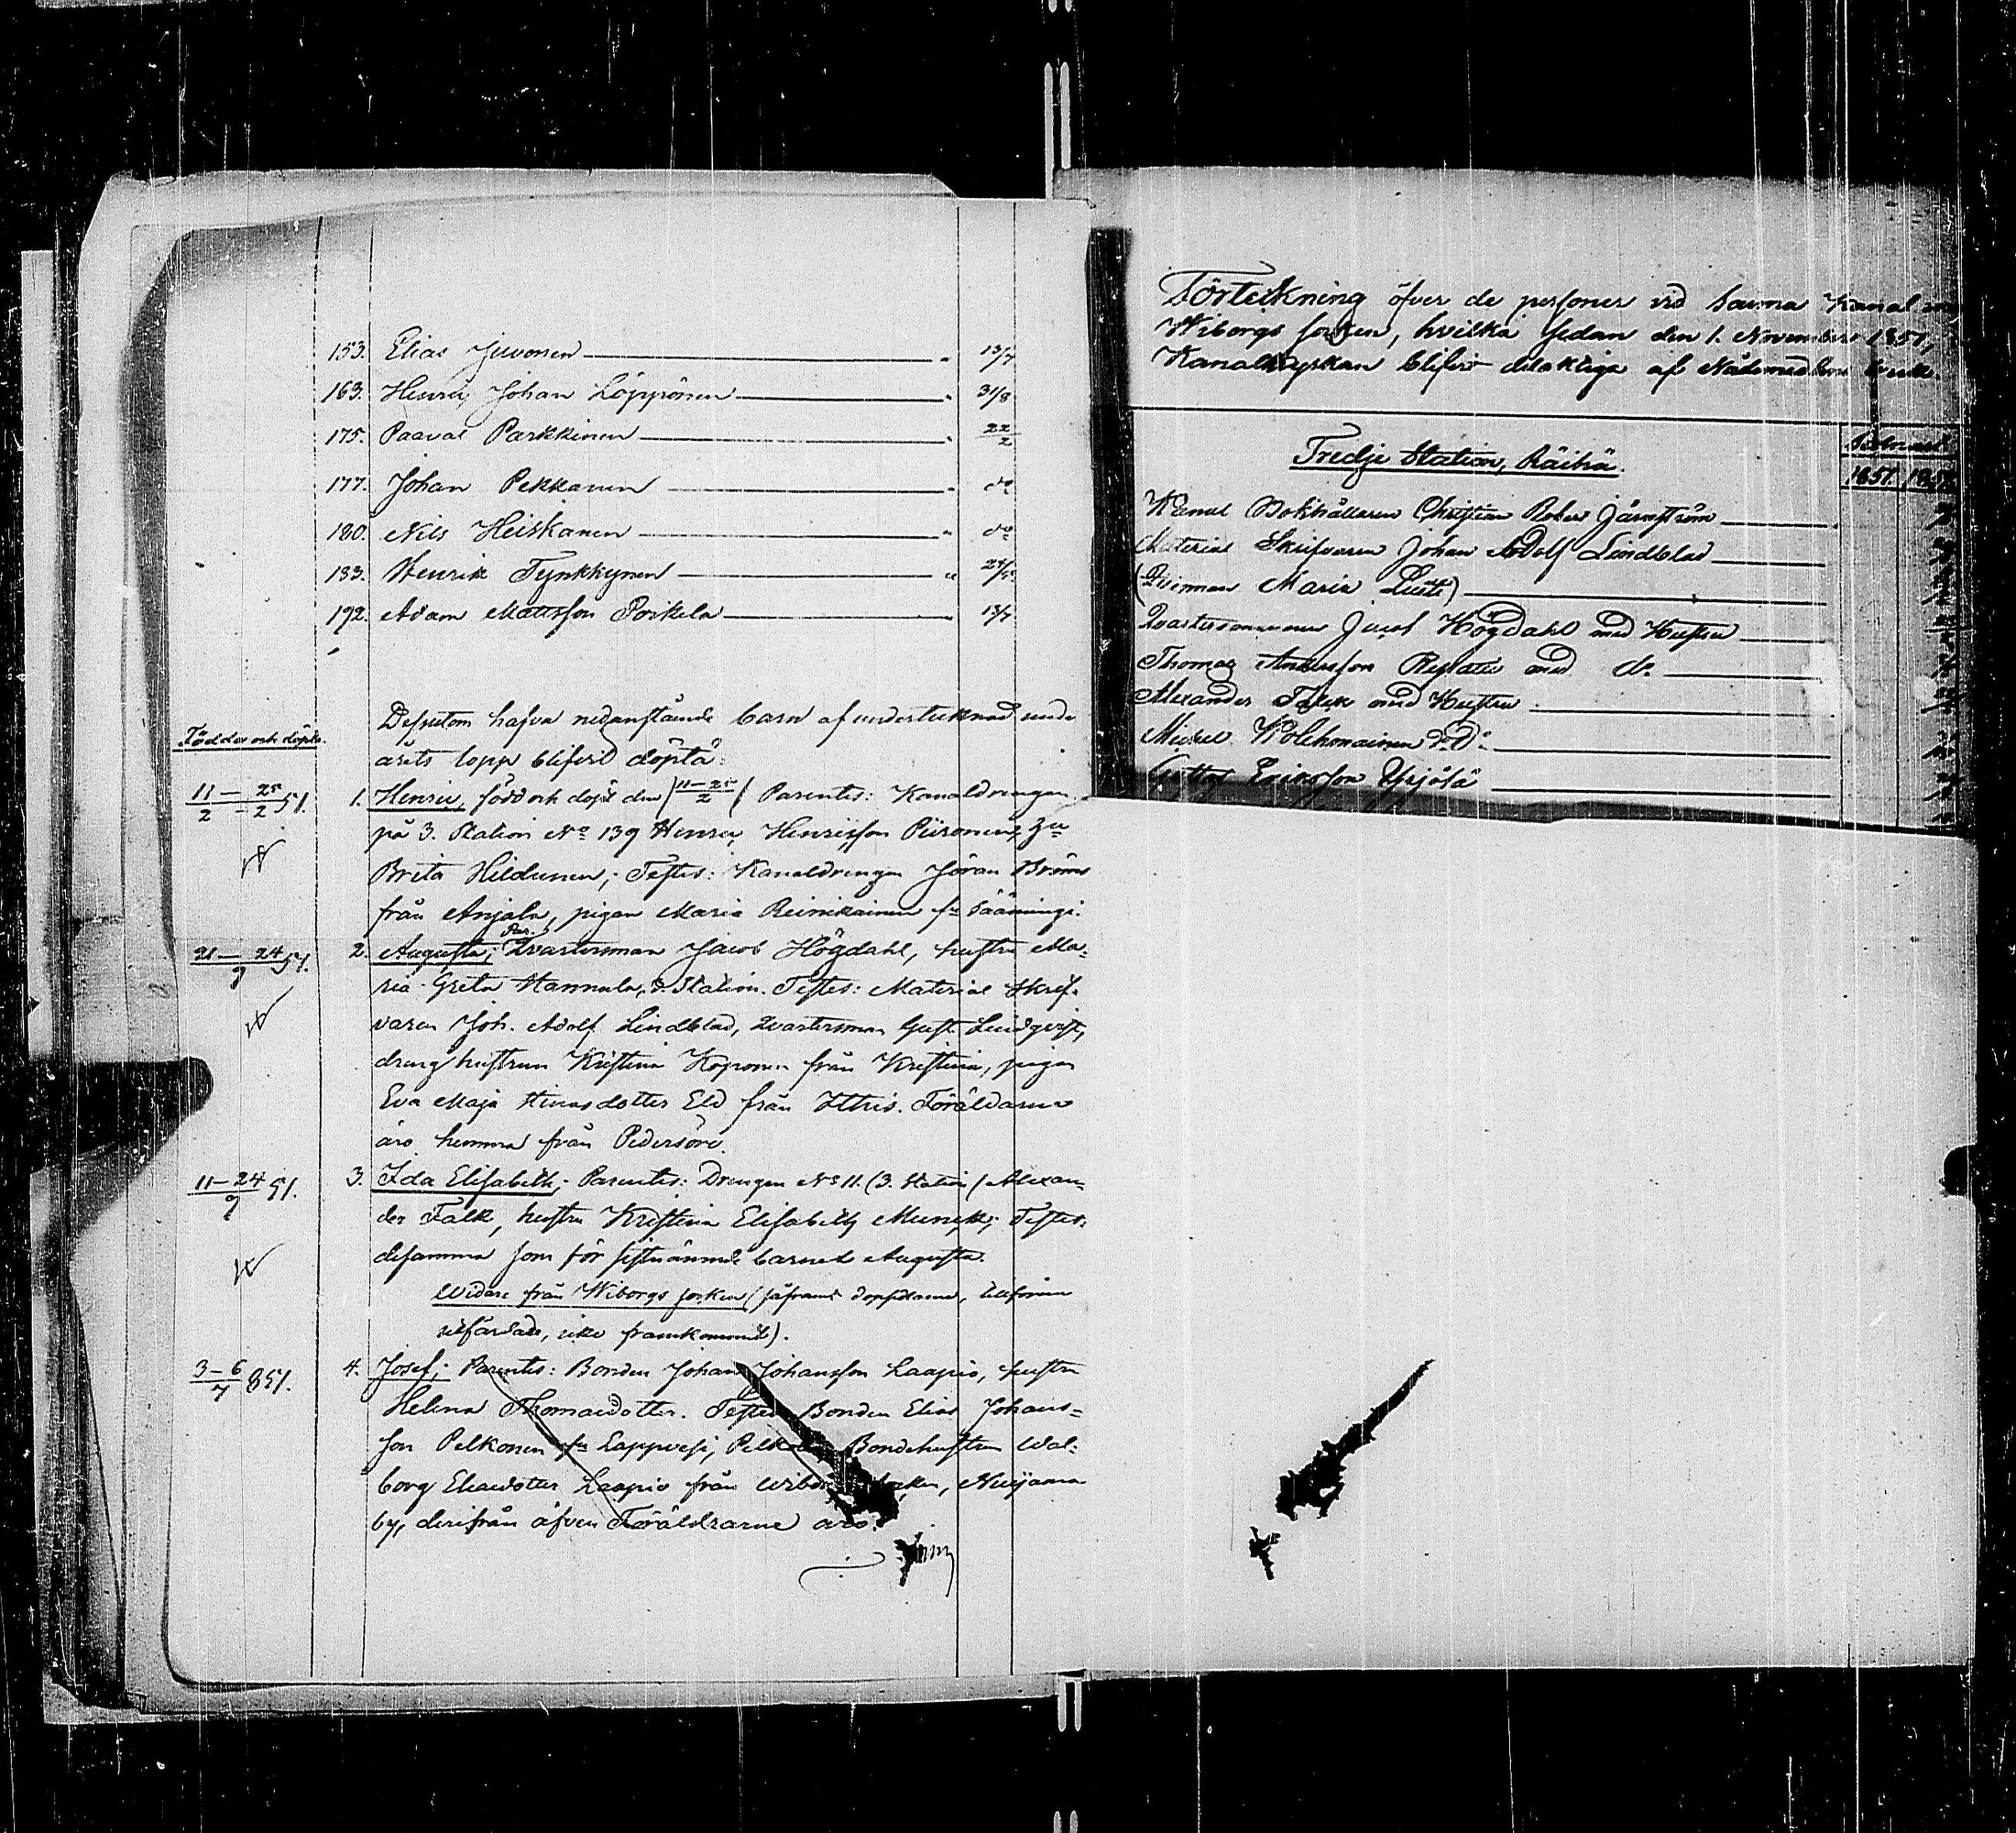 153. Elias Juvonen " 13/7
163. Henric Johan Löppönen " 31/8
175. Paaval Parkkinen " 22/2
177. Johan Pekkanen " do
180. Nils Heiskanen " do
183. Henrik Tynkkynen "
192. Adam Mattsson Poikela " 13/7
Dessutom hafva nedanstående barn af undertecknad under
Födda och döpta.
årets lopp blifvit döpta:
11/2 – 25/2 51. 1. Henric, född och döpt den (11–25/2) Parentes: Kanaldrengen
på 3. Station No 139 Henric Henricsson Piironen,
Brita Hildunen; Testes: Kanaldrengen Jöran Bröms
från Anjala, pigan Maria Reinikainen fr Sääminge.
21–24/9 51. 2. Augusta; Par. Qvartersman Jacob Högdahl, hustru Ma-
ria Greta Hannula, 3. Station. Testes: Material Skrif-
varen Joh. Adolf Lindblad, Qvartersman Gust. Lindqvist,
dreng hustrun Kristina Koponen från Kristina, pigan
Eva Maja dotter Eld från Ittis. Föräldarne
äro hemma från Pedersöre.
11–24/9 51. 3. Ida Elisabeth; Parentes: Drengen No 11. (3. Station) Alexan-
der Falk, hustru Kristina Elisabeth Munck; Testes:
desamma som för sistnämnde barnet Augusta.
Widare från Wiborgs socken (
utfärdade, icke framkommit).
3–6/7 851. 4. Josef; Parentes: Bonden Johan Johansson Laapio, hustru
Helena Thomasdotter. Testes Bonden Elias Johans-
son Pelkonen fr Lappvesi, Bondehustrun Wal-
borg Eliasdotter Laapio från Wiborgs socken, Nuijama
by, derifrån äfven Föräldrarne äro.
Förteckning öfver de personer vid Saima Kanal
Wiborgs socken, hvilka sedan den 1. November 1851,
Kanalkyrkan blifvit delaktige af Nådemedlens bruk.
Tredje Station, Räihä.
1851. 185
Kanal Bokhållaren Christian Robert Järnström
Material Skrifvaren Johan Adolf Lindblad
(Qvinnan Maria
Qvartersmannen Jacob Högdahl med Hustru
Thomas Andersson med do
Alexander Falck med Hustru
Michel Kolehmainen do do
Gustaf Eriksson Yrjölä